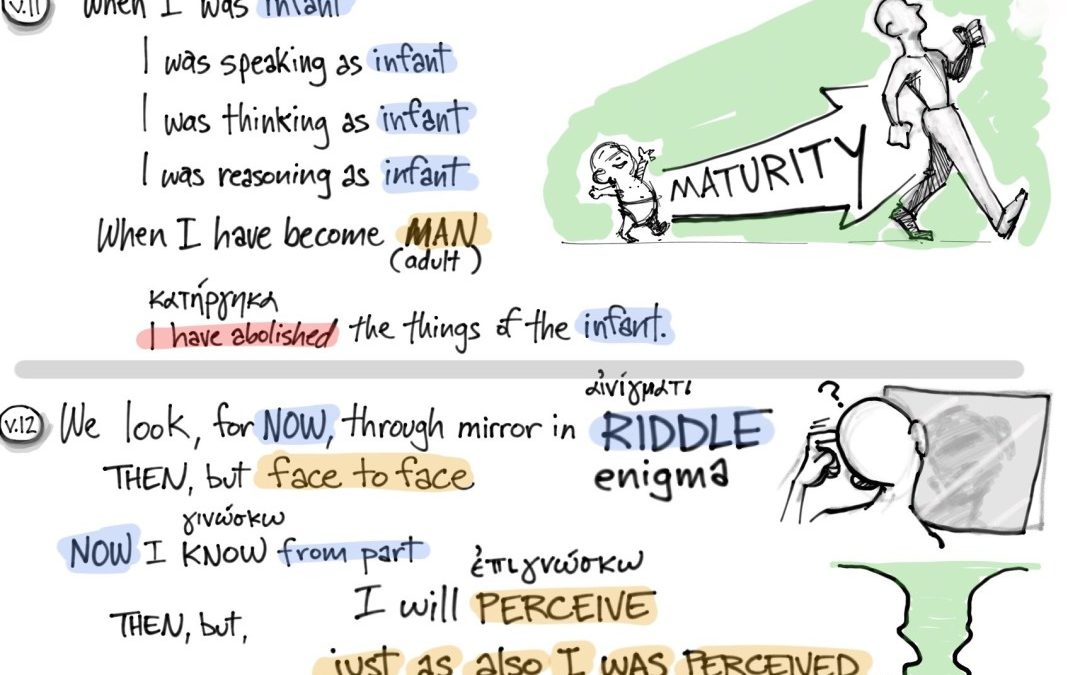 v.11 When I was infant
I was speaking as infant
I was thinking as infant
I was reasoning as infant
When I have become MAN
(adult)
κατήργηκα
I have abolished the things of the infant.
MATURITY
αἰνίγματι
v.12 We look, for NOW, through mirror in RIDDLE
enigma
THEN, but face to face
?
γινώσκω
NOW I KNOW from part
ἐπιγνώσκω
I will PERCEIVE
THEN, but,
just as also I WAS PERCEIVED